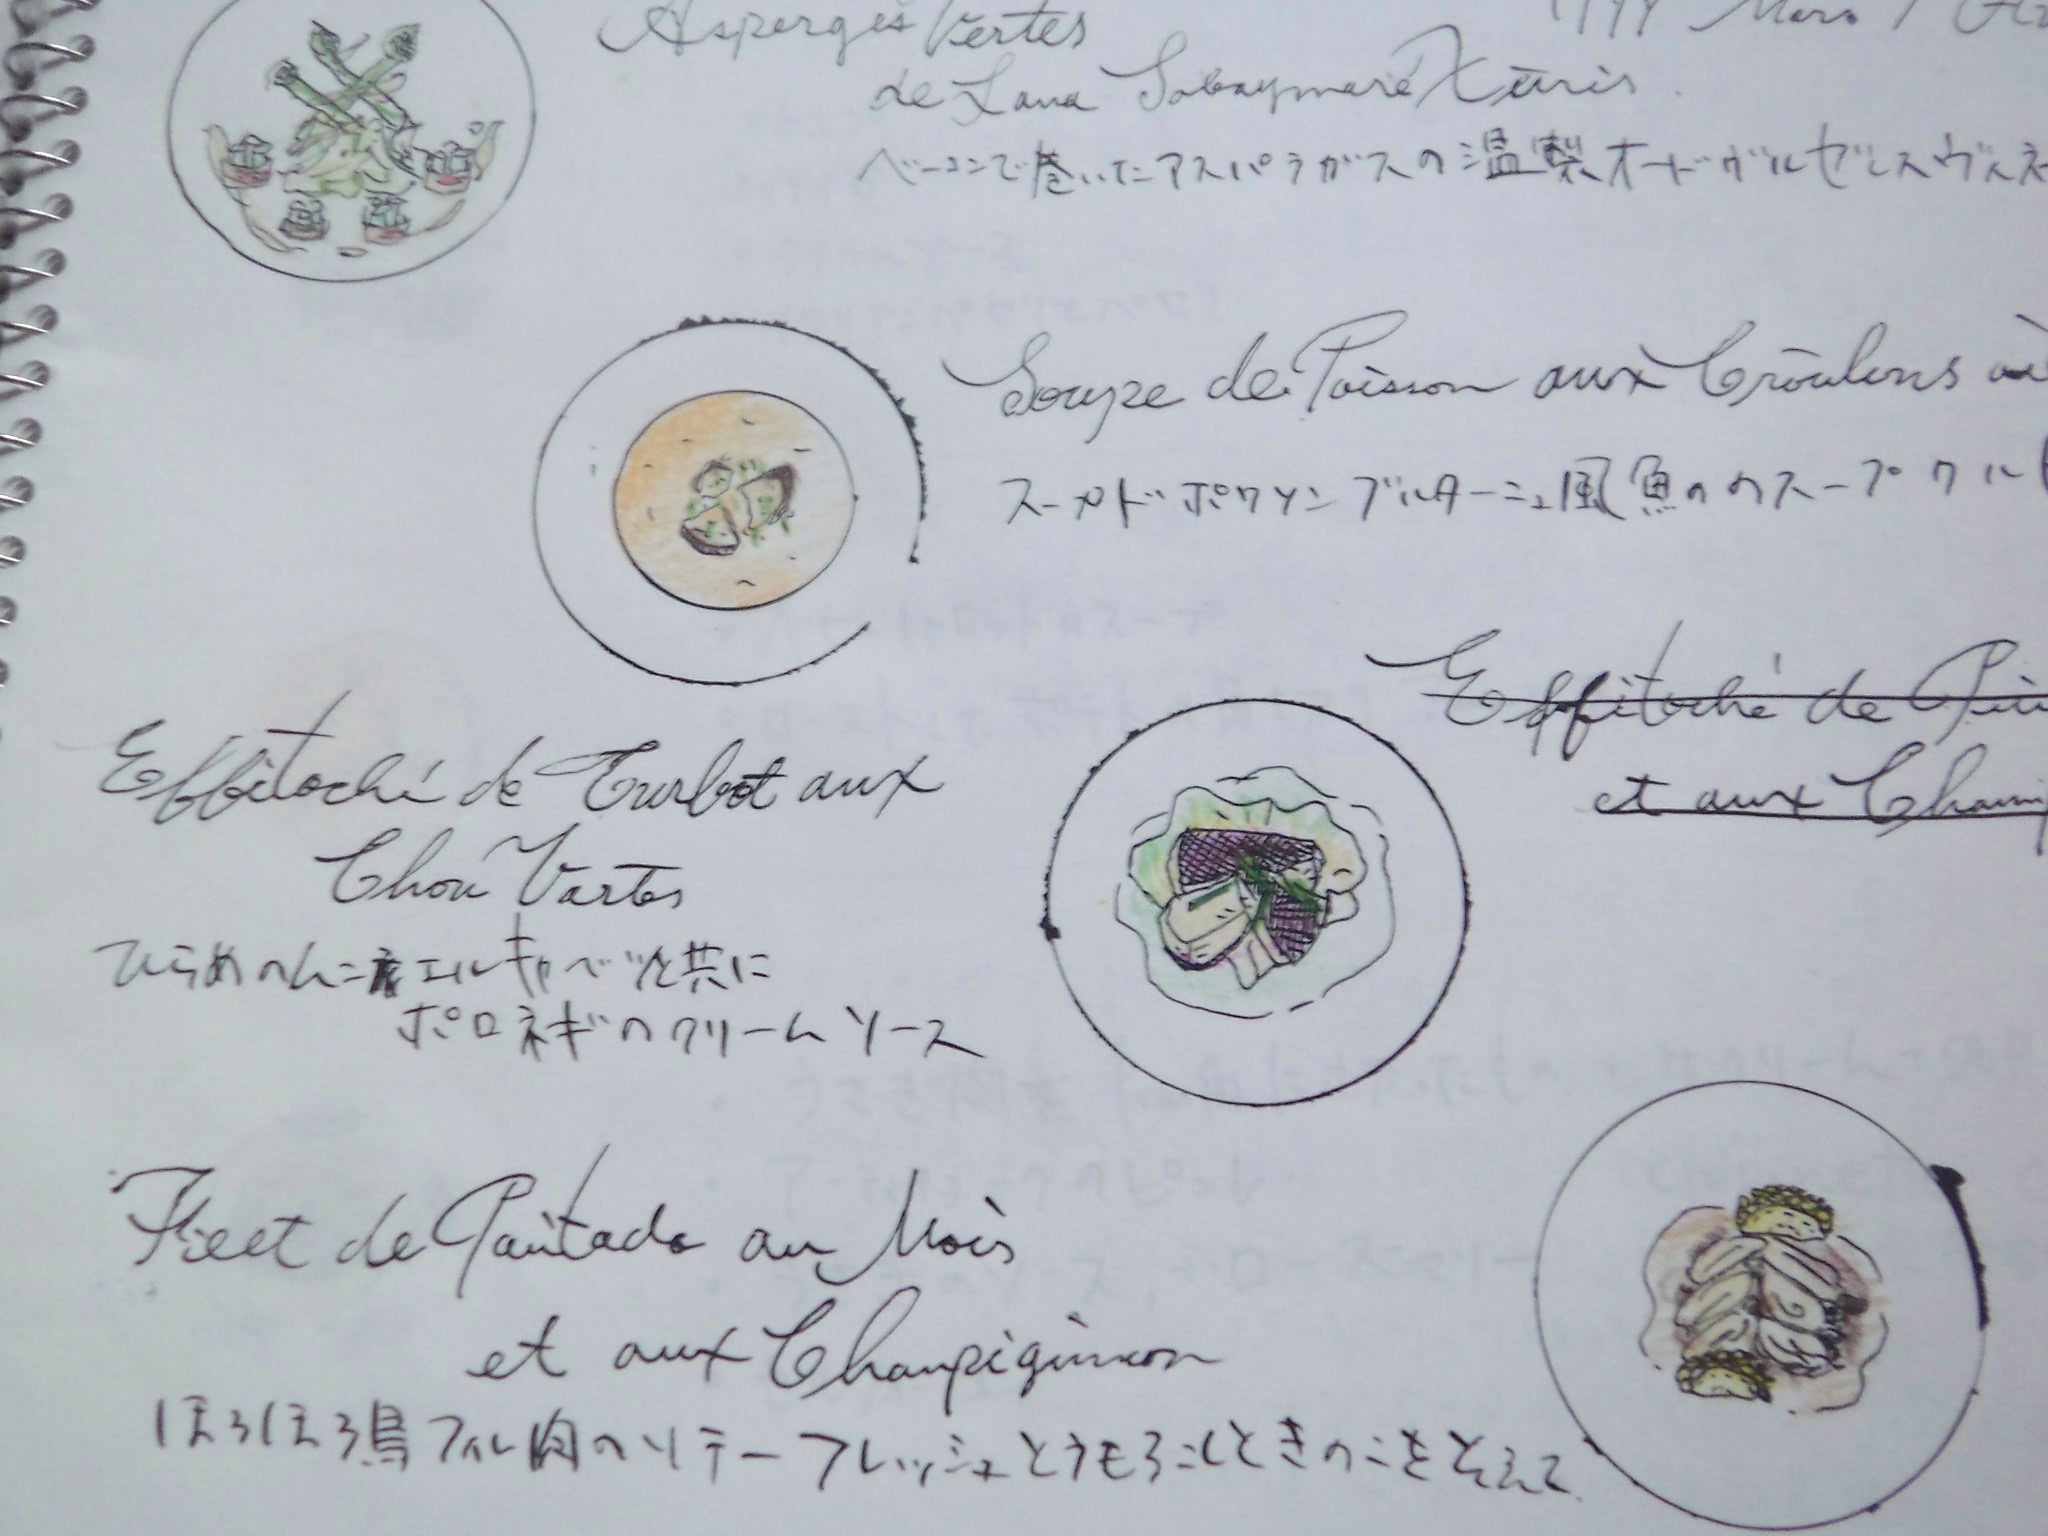 Asperges Vertes
1999 Mars
de Lana Sabaymare Xéris.
ベーコンで巻いたアスパラガスの温製オードヴル ゼレスヴィネ
Soupe de Poisson aux Croûtons
スープドポワソン ブルターニュ風魚ののスープ クル
Effitoché de
et aux Cham
Effitoché de Turbot aux
Chou Vartes
ひらめの
キャベツと共に
ポロネギのクリームソース
Fieet de Paintade au Moïs
et aux Champiginnon
ほろほろ鳥フィレ肉のソテー フレッシュとうもろこしときのこをそえて